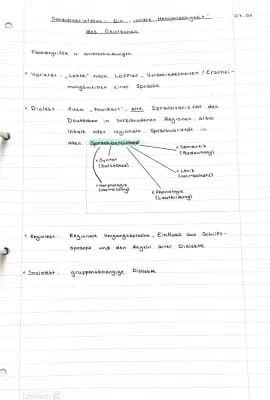 Sprachvarietäten - Die "innere Mehrsprachigkeit"
07.03
des Deutschen
Fachbegriffe u. Unterscheidungen
• Varietät: "Lekte" nach Löffler, Verschiedenheiten / Erschei-
nungsweisen einer Sprache
• Dialekt: Auch "Mundart", Sprachvarietät des
Deutschen in verschiedenen Regionen, also
lokale oder regionale Sprachvarietät in
allen Sprachbereichen
• Syntax
(Satzlehre)
• Semantik
(Bedeutung)
• Morphologie
• Lexik
(Wortschatz)
• Phonologie
(Lautbildung)
• Regiolekt: Regionale Umgangssprache, Einfluss aus Schrift-
sprache und den Regeln einer Dialekte
• Soziolekt: gruppenabhängige Dialekte